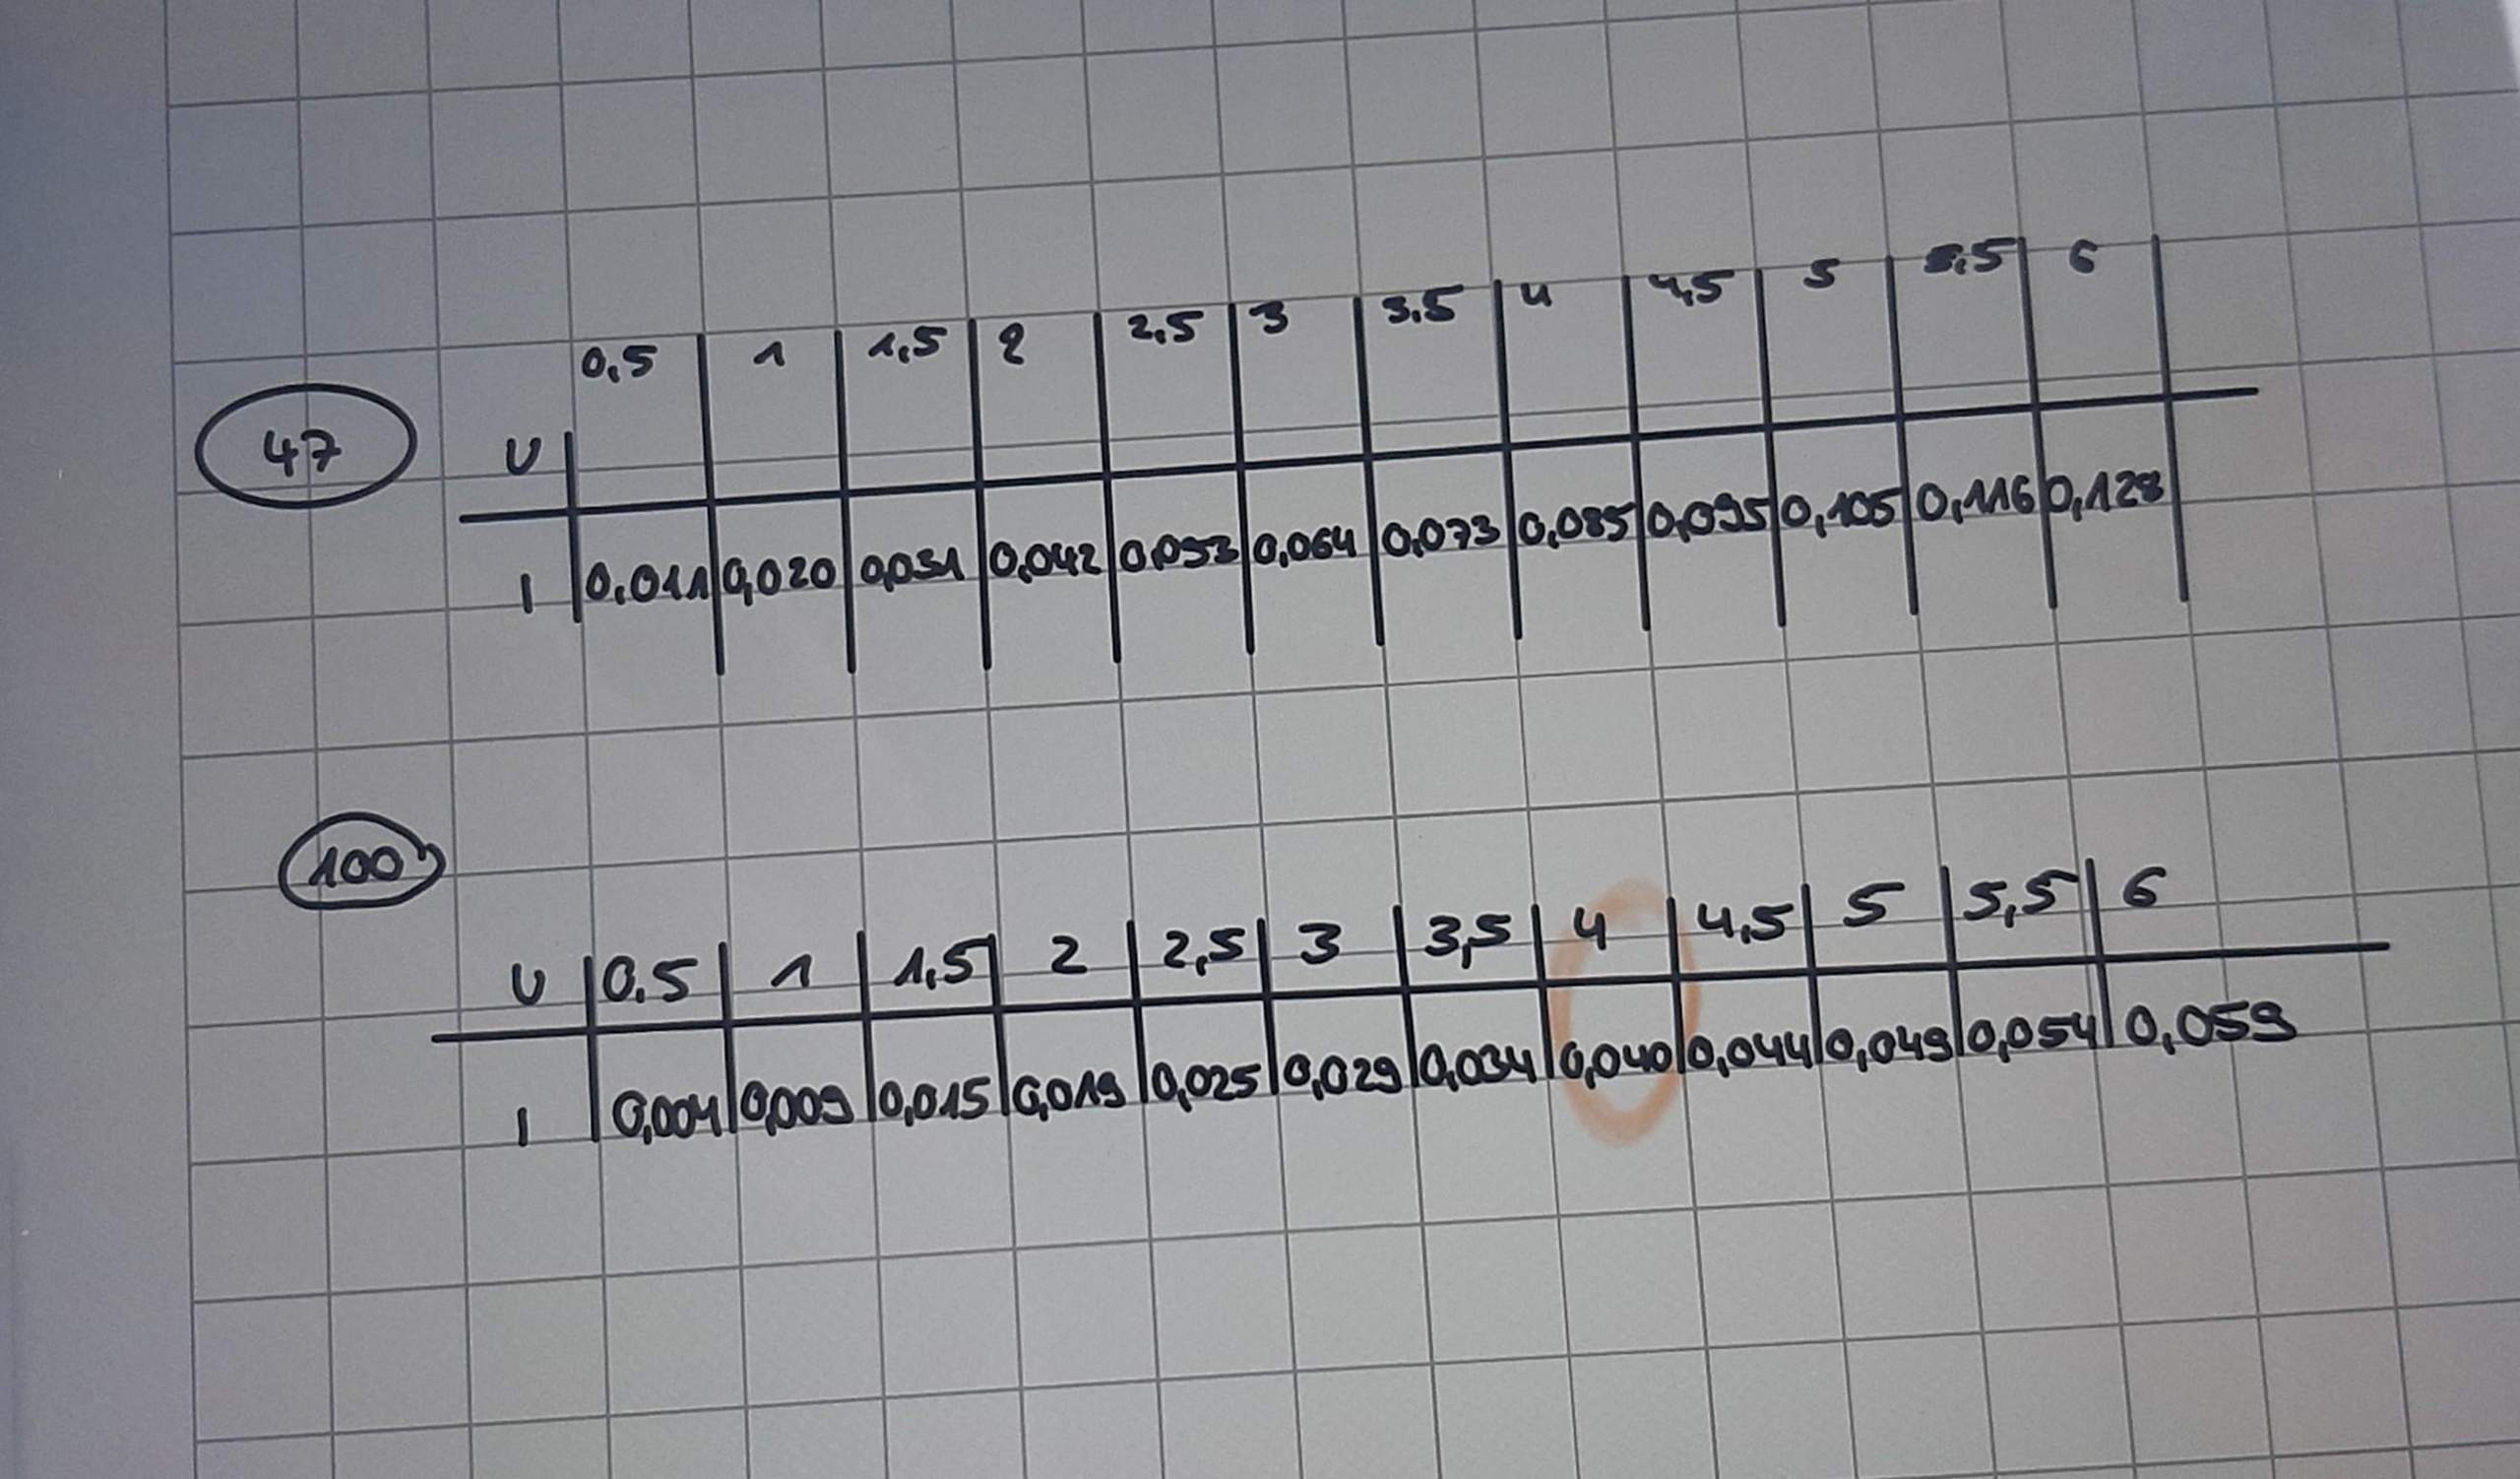 0,5 1 1,5 2 2,5 3 3.5 4 4,5 5 5,5 6
47 U
I 0,011 0,020 0,031 0,042 0,053 0,064 0,073 0,085 0,095 0,105 0,116 0,128
100
U 0.5 1 1,5 2 2,5 3 3,5 4 4,5 5 5,5 6
I 0,004 0,009 0,015 0,019 0,025 0,029 0,034 0,040 0,044 0,049 0,054 0,059